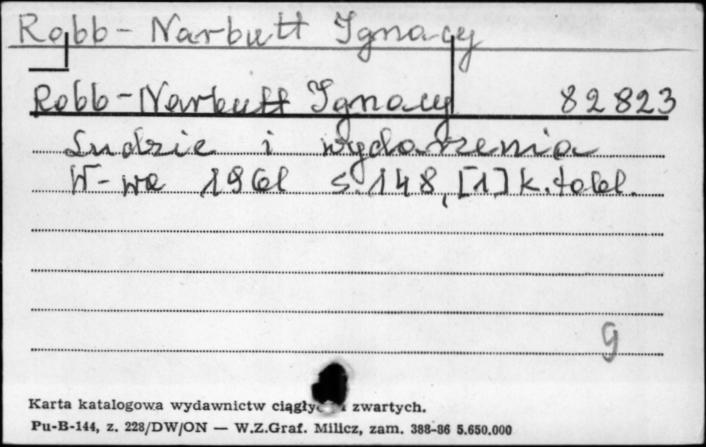 Robb-Narbutt Ignacy
Robb-Narbutt Ignacy 82823
Ludzie i wydarzenia
W-wa 1961 s. 148, [1] k. tabl.
9
Karta katalogowa wydawnictw ciągły zwartych.
Pu-B-144, z. 228/DW/ON — W.Z.Graf. Milicz, zam. 388-86 5.650.000